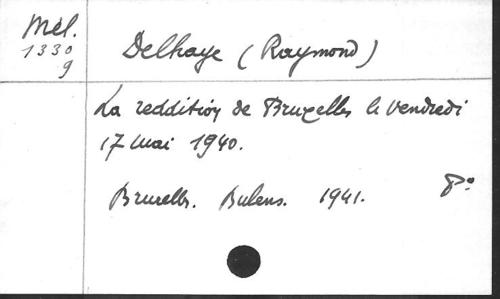 Mél.
1330
g
Delhaye (Raymond)
La reddition de Bruxelles le vendredi
17 mai 1940.
Bruxelles. Bulens. 1941. 8°